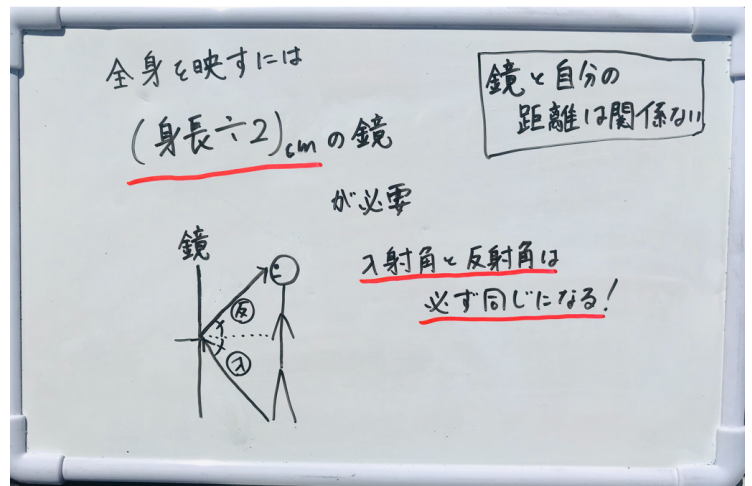 全身を映すには
(身長÷2)cmの鏡
が必要
鏡と自分の
距離は関係ない
鏡
反
入
入射角と反射角は
必ず同じになる!